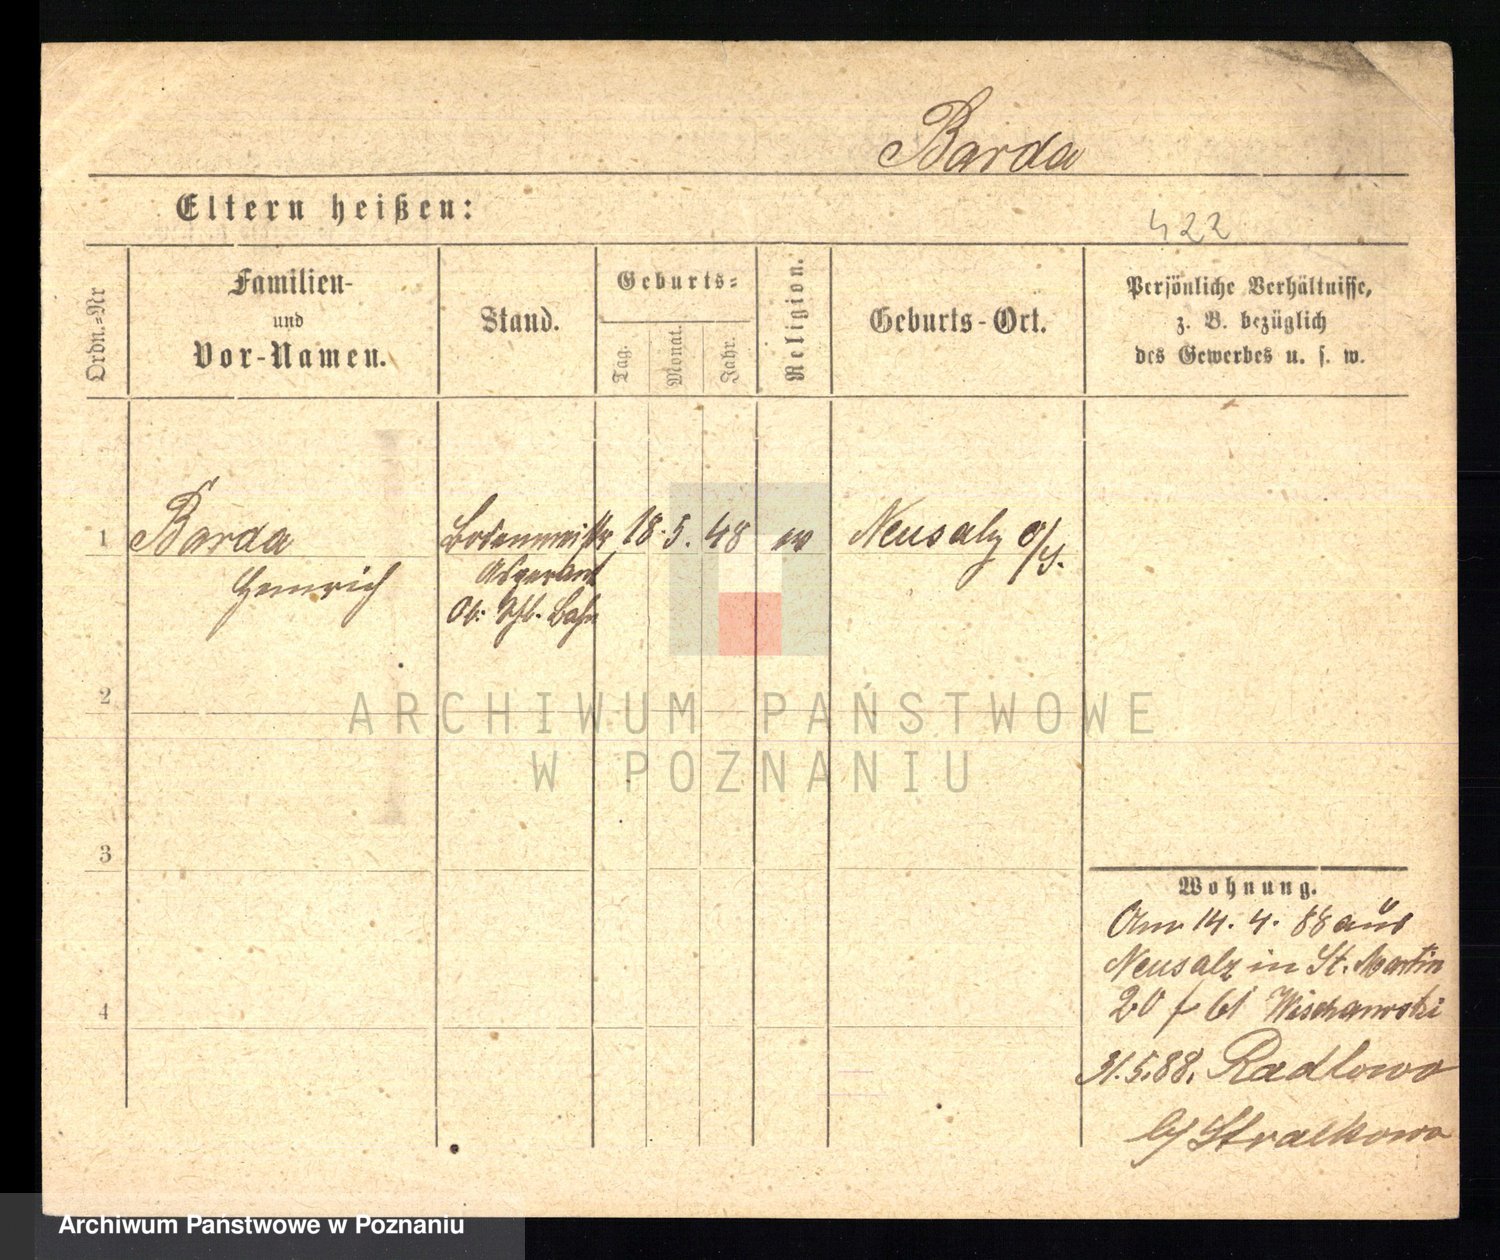 Barda
Eltern heißen:
422
Ordn.-Nr
Familien-
und
Vor-Namen.
Stand.
Geburts-
Tag.
Monat.
Jahr.
Religion.
Geburts-Ort.
Persönliche Verhältnisse,
z. B. bezüglich
des Gewerbes u. s. w.
1 Barda 18. 5. 48 ev Neusalz o/
Heinrich
Ob. Schl. Bahn
2
3
4
Wohnung.
Am 14. 4. 88 aus
Neusalz in St. Martin
20 bei
31.5.88. Radlowo
b/ Stralkowo
ARCHIWUM PAŃSTWOWE
W POZNANIU
Archiwum Państwowe w Poznaniu